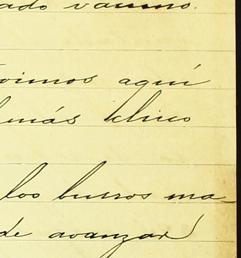 ado vamos.
vimos aquí
más chico
los burros ma-
de avanzar